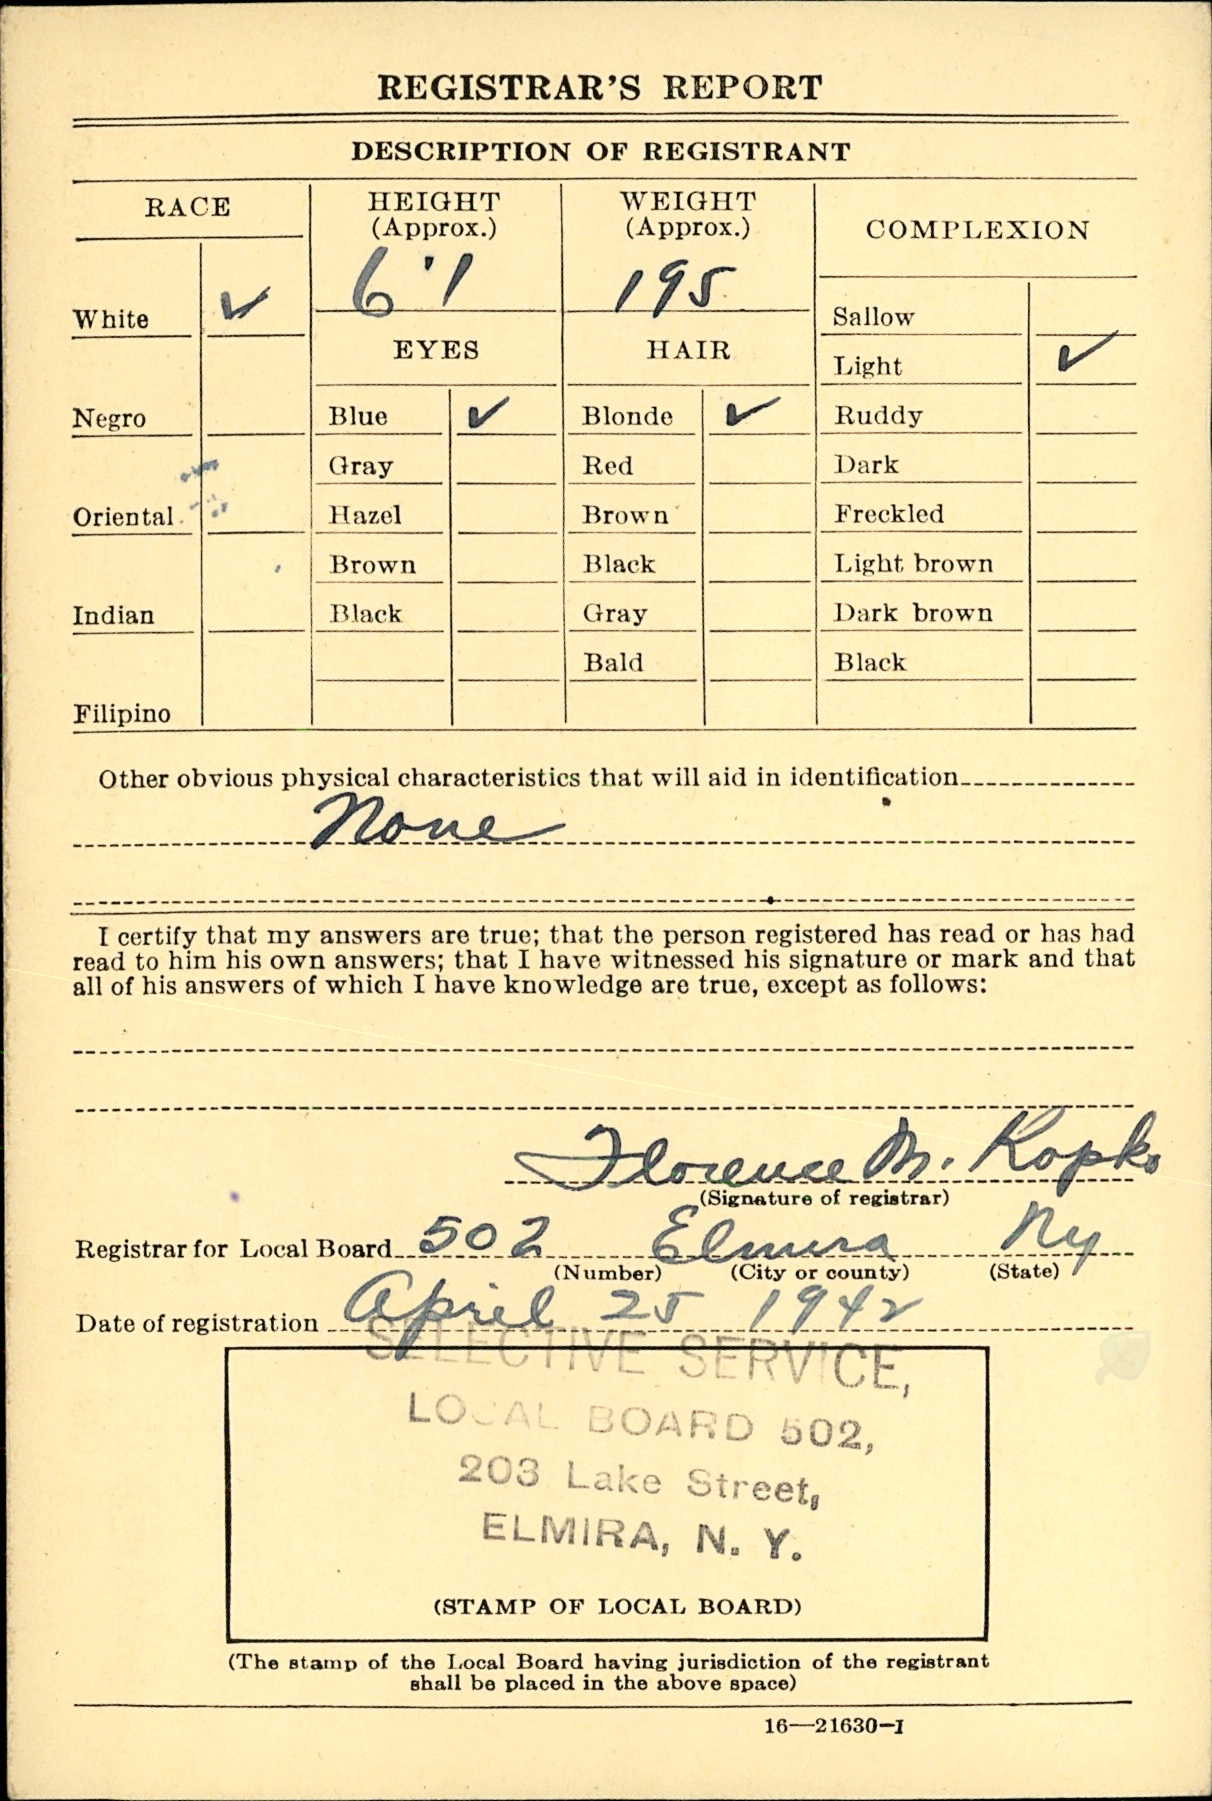 REGISTRAR'S REPORT
DESCRIPTION OF REGISTRANT
RACE
HEIGHT
(Approx.)
WEIGHT
(Approx.)
COMPLEXION
6'1
195
White ✓
Sallow
EYES
HAIR
Light ✓
Negro
Blue ✓
Blonde ✓
Ruddy
Gray
Red
Dark
Oriental
Hazel
Brown
Freckled
Brown
Black
Light brown
Indian
Black
Gray
Dark brown
Bald
Black
Filipino
Other obvious physical characteristics that will aid in identification
None
I certify that my answers are true; that the person registered has read or has had
read to him his own answers; that I have witnessed his signature or mark and that
all of his answers of which I have knowledge are true, except as follows:
Florence M. Kopko
(Signature of registrar)
Registrar for Local Board 502 Elmira Ny
(Number) (City or county) (State)
Date of registration April 25 1942
SELECTIVE SERVICE,
LOCAL BOARD 502,
203 Lake Street,
ELMIRA, N. Y.
(STAMP OF LOCAL BOARD)
(The stamp of the Local Board having jurisdiction of the registrant
shall be placed in the above space)
16—21630-1